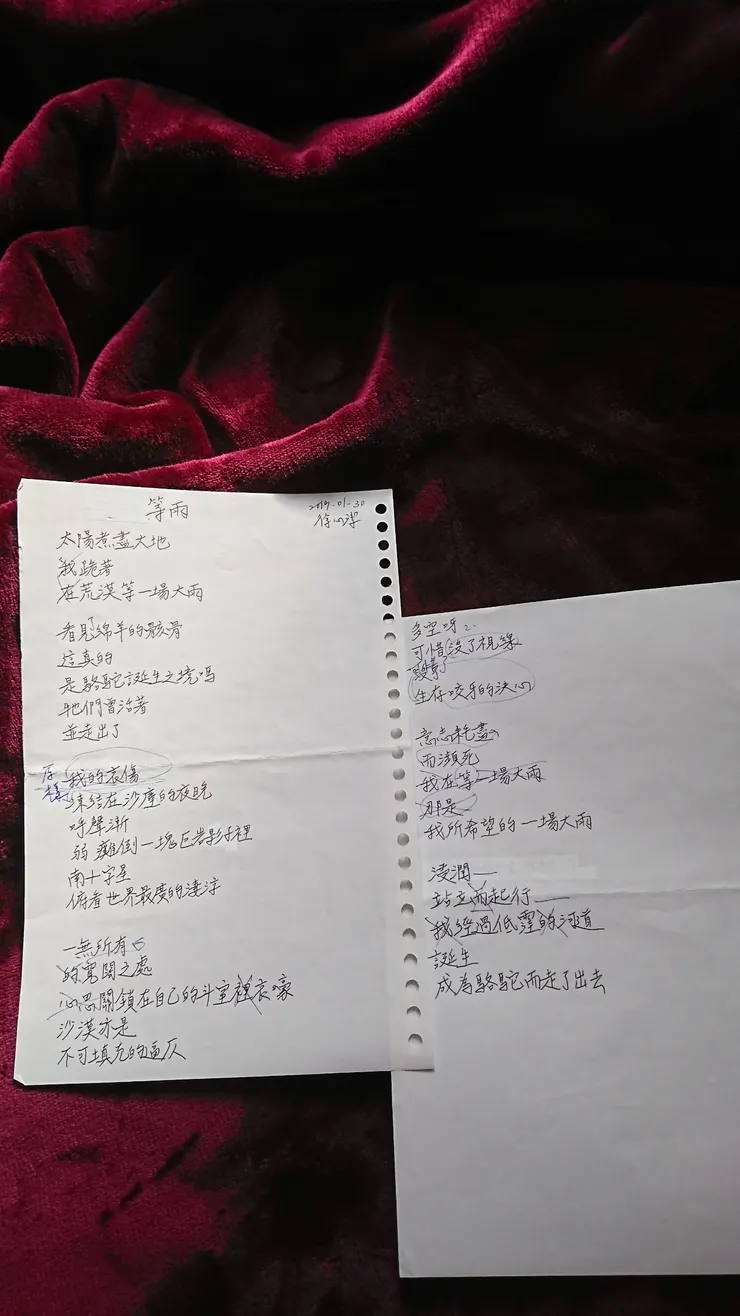 等雨
2019-01-30
徐心潔
太陽煮盡大地
我跪著
在荒漠等一場大雨
看見綿羊的骸骨
這真的
是駱駝誕生之境嗎
牠們曾活著
並走出了
我的哀傷
凍結在沙塵的夜晚
呼聲漸
弱 癱倒一塊巨岩影裡
南十字星
俯看世界最廣的淒涼
一無所有
的寬闊之處
心思關鎖在自己的斗室裡哀嚎
沙漠亦是
不可填充的逼仄
多空呀
可惜沒了視線
生存咬牙的決心
意志耗盡
而瀕死
我在等一場大雨
那是
我所希望的一場大雨
浸潤—
站立而起行—
我經過低窪的河道
誕生
成為駱駝而走了出去